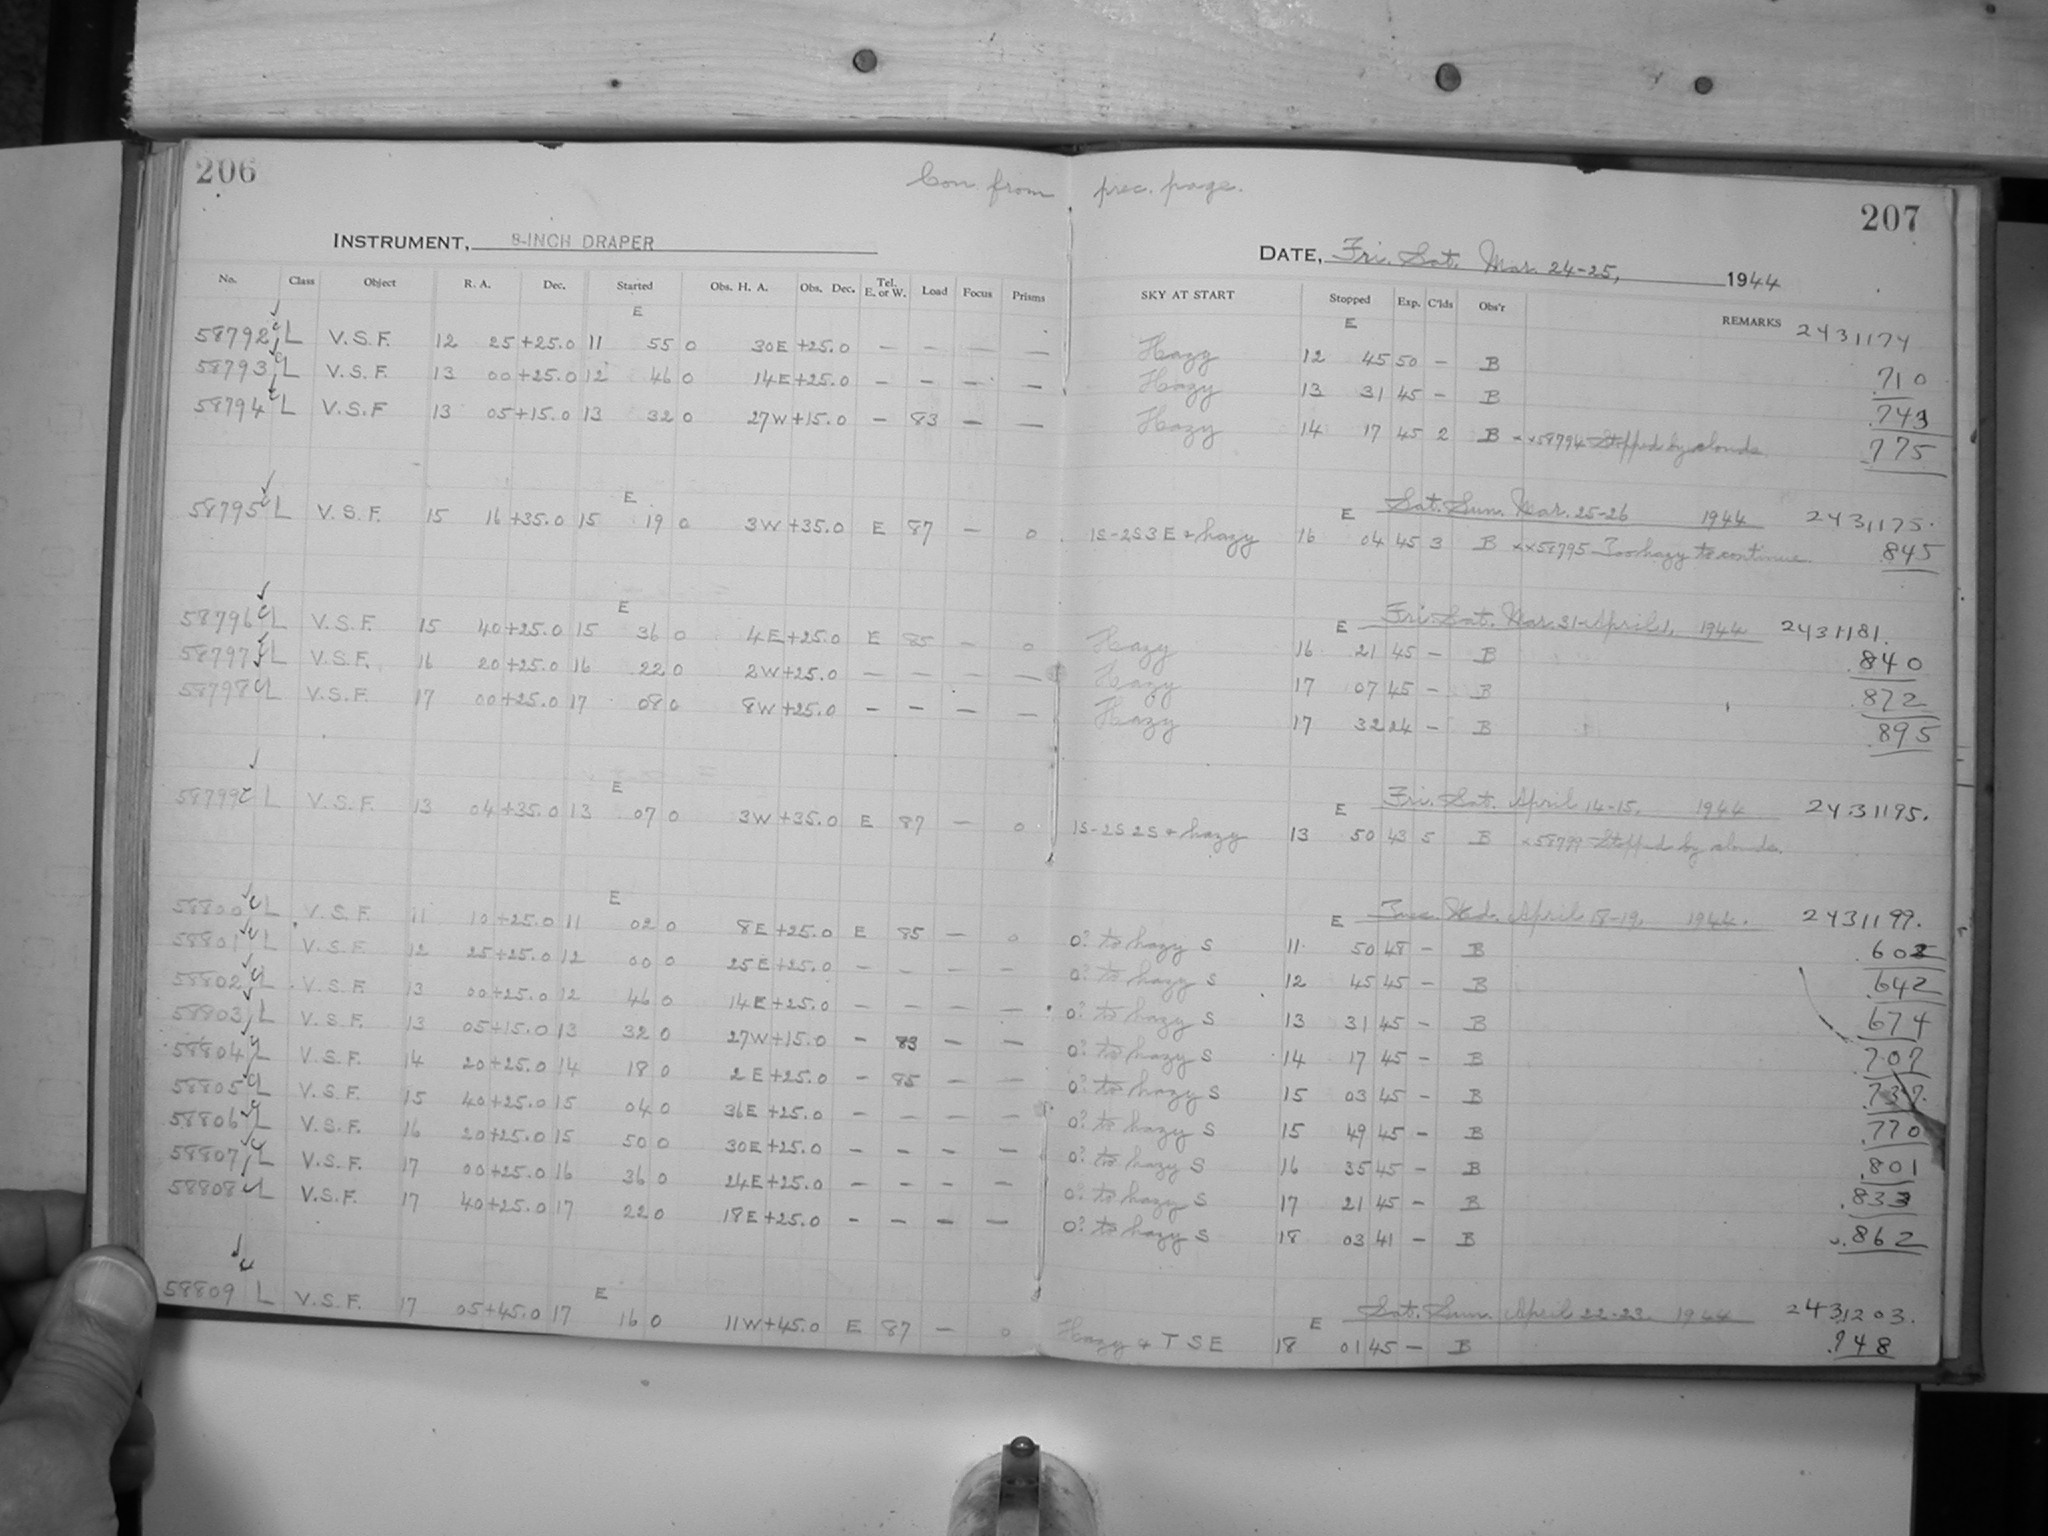 206
Con. from prec. page.
207
INSTRUMENT, 8-INCH DRAPER
DATE, Fri. Sat. Mar. 24-25, 1944
No. Class Object R. A. Dec. Started Obs. H. A. Obs. Dec. Tel. E. or W. Load Focus Prisms SKY AT START Stopped Exp. C'lds Obs'r REMARKS 2431174
E E
58792 L V.S.F. 12 25 +25.0 11 55 0 30E +25.0 — — — — Hazy 12 45 50 — B .710
58793 L V.S.F. 13 00 +25.0 12 46 0 14E +25.0 — — — — Hazy 13 31 45 — B .743
58794 L V.S.F 13 05 +15.0 13 32 0 27W +15.0 — 83 — — Hazy 14 17 45 2 B xx58794 Stopped by clouds .775
E E Sat. Sun. Mar. 25-26 1944 2431175.
58795 L V.S.F. 15 16 +35.0 15 19 0 3W +35.0 E 87 — 0 1S-2S3E & hazy 16 04 45 3 B xx58795 Too hazy to continue. .845
E E Fri. Sat. Mar. 31-April 1, 1944 2431181.
58796 L V.S.F. 15 40 +25.0 15 36 0 4E +25.0 E 85 — 0 Hazy 16 21 45 — B .840
58797 L V.S.F. 16 20 +25.0 16 22 0 2W +25.0 — — — — Hazy 17 07 45 — B .872
58798 L V.S.F. 17 00 +25.0 17 08 0 8W +25.0 — — — — Hazy 17 32 24 — B .895
E E Fri. Sat. April 14-15, 1944 2431195.
58799 L V.S.F. 13 04 +35.0 13 07 0 3W +35.0 E 87 — 0 1S-2S 2S & hazy 13 50 43 5 B x58799 Stopped by clouds.
E E Tues. Wed. April 18-19, 1944. 2431199.
58800 L V.S.F. 11 10 +25.0 11 02 0 8E +25.0 E 85 — 0 0? to hazy S 11 50 48 — B .602
58801 L V.S.F. 12 25 +25.0 12 00 0 25E +25.0 — — — — 0? to hazy S 12 45 45 — B .642
58802 L V.S.F. 13 00 +25.0 12 46 0 14E +25.0 — — — — 0? to hazy S 13 31 45 — B .674
58803 L V.S.F. 13 05 +15.0 13 32 0 27W +15.0 — 83 — — 0? to hazy S 14 17 45 — B .707
58804 L V.S.F. 14 20 +25.0 14 18 0 2E +25.0 — 85 — — 0? to hazy S 15 03 45 — B
58805 L V.S.F. 15 40 +25.0 15 04 0 36E +25.0 — — — — 0? to hazy S 15 49 45 — B .770
58806 L V.S.F. 16 20 +25.0 15 50 0 30E +25.0 — — — — 0? to hazy S 16 35 45 — B .801
58807 L V.S.F. 17 00 +25.0 16 36 0 24E +25.0 — — — — 0? to hazy S 17 21 45 — B .833
58808 L V.S.F. 17 40 +25.0 17 22 0 18E +25.0 — — — — 0? to hazy S 18 03 41 — B .862
E E Sat. Sun. April 22-23. 1944 2431203.
58809 L V.S.F. 17 05 +45.0 17 16 0 11W +45.0 E 87 — 0 Hazy & T S E 18 01 45 — B